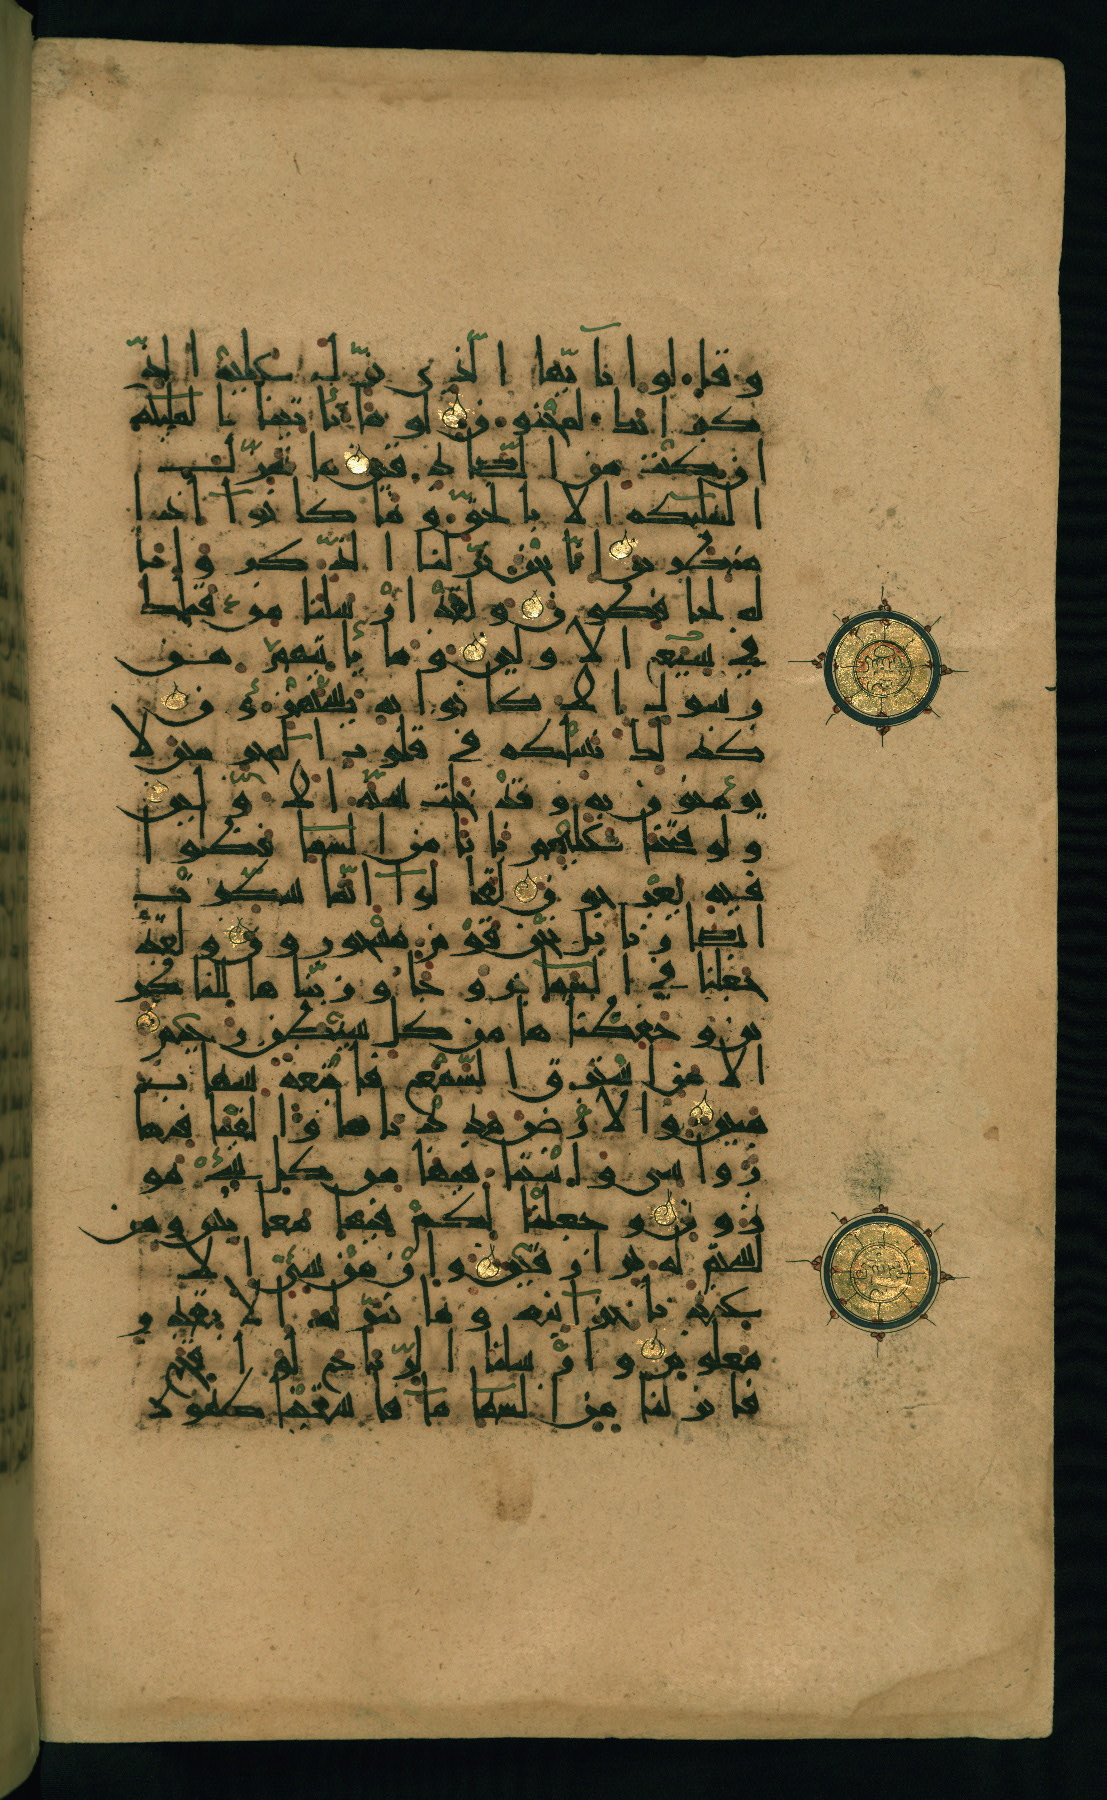 وقالوا يا أيها الذي نزل عليه الذ
كر إنك لمجنون لو ما تأتينا بالملئكة
إن كنت من الصادقين ما ننزل
الملئكة إلا بالحق وما كانوا إذا
منظرين إنا نحن نزلنا الذكر وإنا
له لحافظون ولقد أرسلنا من قبلك
في شيع الأولين وما يأتيهم من
رسول إلا كانوا به يستهزءون
كذلك نسلكه في قلوب المجرمين لا
يؤمنون به وقد خلت سنة الأولين
ولو فتحنا عليهم بابا من السماء فظلوا
فيه يعرجون لقالوا إنما سكرت
أبصارنا بل نحن قوم مسحورون ولقد
جعلنا في السماء بروجا وزيناها للناظر
ين وحفظناها من كل شيطن رجيم
إلا من استرق السمع فأتبعه شهاب
مبين والأرض مددناها وألقينا فيها
رواسي وأنبتنا فيها من كل شيء مو
زون وجعلنا لكم فيها معايش ومن
لستم له برازقين وإن من شيء إلا
عندنا خزائنه وما ننزله إلا بقدر
معلوم وأرسلنا الرياح لواقح
فأنزلنا من السماء ماء فأسقيناكموه